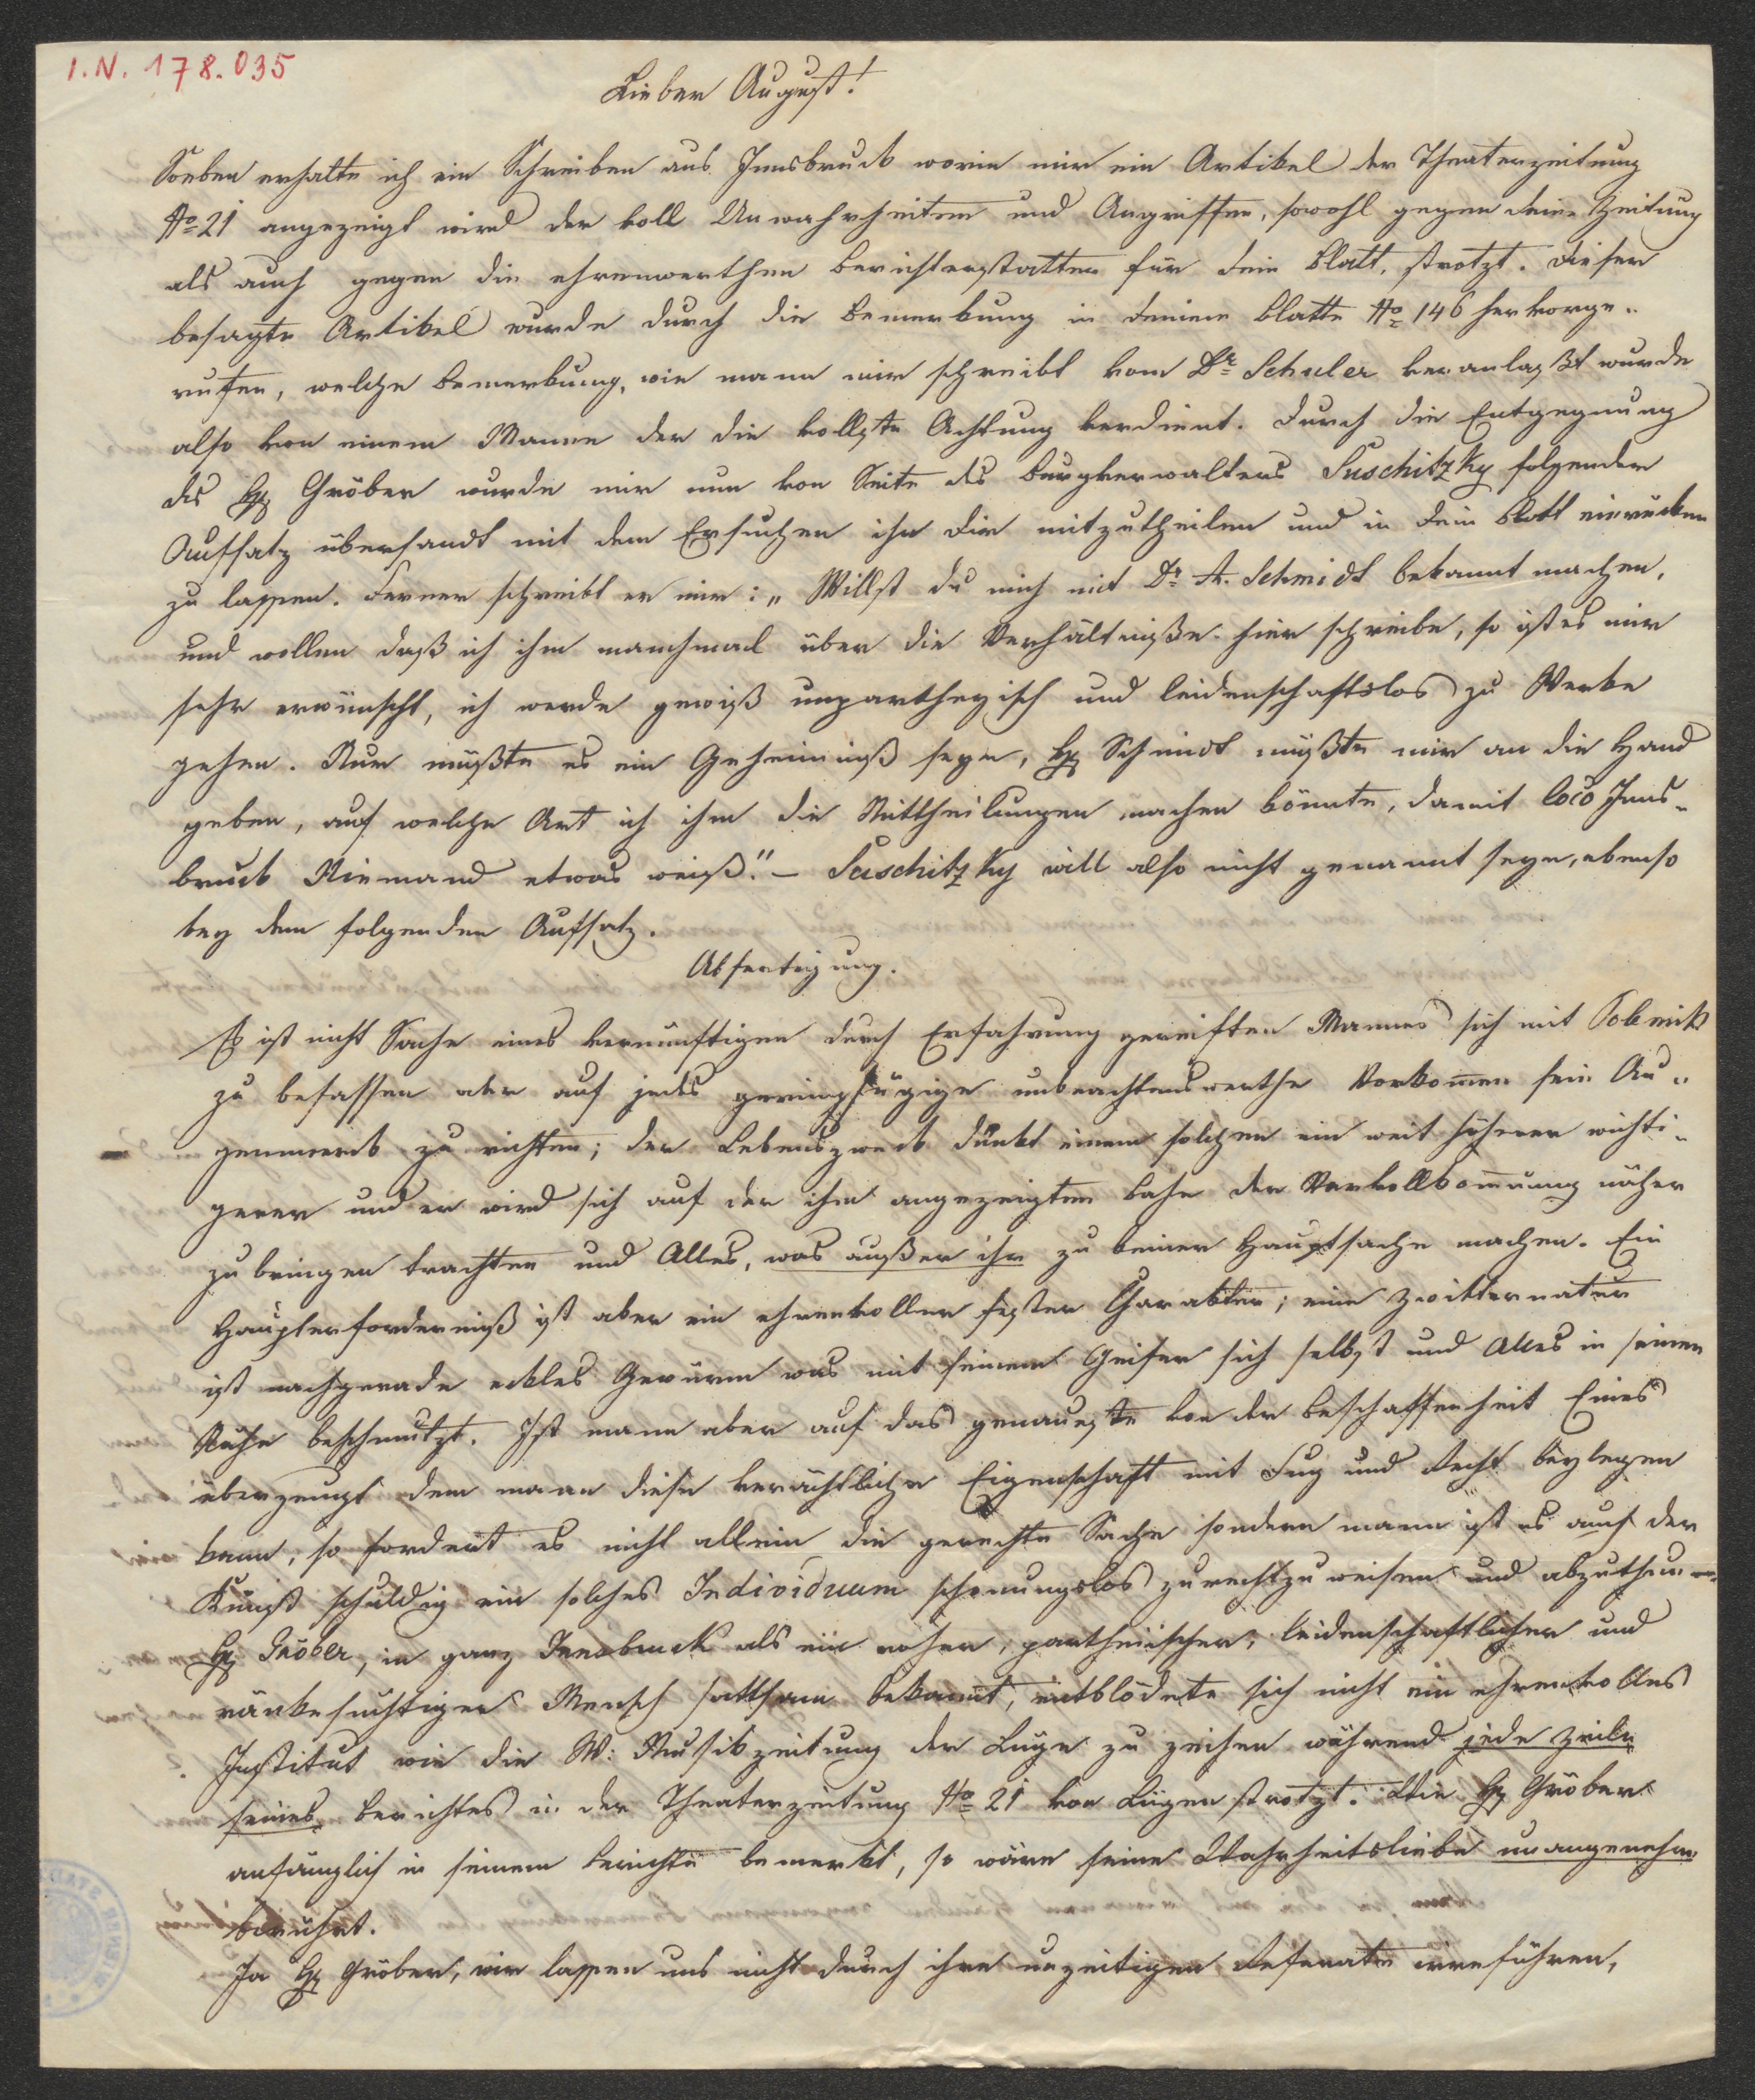 I.N. 178.035
Lieber August!
Soeben erhalte ich ein Schreiben aus Innsbruck worin mir ein Artikel der Theaterzeitung
No 21 angezeigt wird der voll Unwahrheiten und Angriffen, sowohl gegen deine Zeitung
als auch gegen die ehrenwerthen Berichterstatter für dein Blatt, strotzt. Dieser
besagte Artikel wurde durch die Bemerkung in deinem Blatte No 146 hervorge-
rufen, welche Bemerkung, wie mann mir schreibt vom Dr Schuler veranlaßt wurde
also von einem Manne der die vollste Achtung verdient. Durch die Entgegnung
des H. Gröber wurde mir nun von Seite des Burgverwalters Suschitzky folgender
Aufsatz übersandt mit dem Ersuchen ihn dir mitzutheilen und in dein Blatt einrücken
zu lassen. Ferner schreibt er mir: „Willst du mich mit Dr A. Schmidt bekannt machen,
und wollen daß ich ihm manchmal über die Verhältniße hier schreibe, so ist es mir
sehr erwünscht, ich werde gewiß unpartheyisch und leidenschaftslos zu Werke
gehen. Nur müßte es ein Geheimniß seyn, H. Schmidt müßte mir an die Hand
geben, auf welche Art ich ihm die Mittheilungen machen könnte, damit loco Inns-
bruck Niemand etwas weiß." – Suschitzky will also nicht genannt seyn, ebenso
bey dem folgenden Aufsatz.
Abfertigung.
Es ist nicht Sache eines vernünftigen durch Erfahrung gereiften Mannes sich mit Polemik
zu befassen oder auf jedes geringfügige unbeachtenswerthe Vorkom̄en sein Au-
genmerk zu richten; der Lebenszweck dünkt einem solchen ein weit höherer wichti-
gerer und er wird sich auf der ihm angezeigten Bahn der Vervollkom̄nung näher
zu bringen trachten und Alles, was außer ihr zu keiner Hauptsache machen. Ein
Haupterforderniß ist aber ein ehrenvoller fester Charakter; eine Zwitternatur
ist nachgerade eckles Gewürm was mit seinem Geifer sich selbst und Alles in seiner
Nähe beschmutzt. Ist mann aber auf das genaueste von der Beschaffenheit Eines
überzeugt dem mann diese verächtliche Eigenschaft mit Fug und Recht beylegen
kann, so fordert es nicht allein die gerechte Sache sondern mann ist es auch der
Kunst schuldig ein solches Individuum schonungslos zurechtzuweisen und abzuthun –
H. Gröber, in ganz Innsbruck als ein roher, partheiischer, leidenschaftlicher und
ränkesüchtiger Mensch sattsam bekannt, entblödete sich nicht ein ehrenvolles
Institut wie die W: Musikzeitung der Lüge zu zeihen während jede Zeile
seines Berichtes in der Theaterzeitung No 21 von Lügen strotzt. Wie H. Gröber
anfänglich in seinem Berichte bemerkt, so wäre seine Wahrheitsliebe unangenehm
berührt.
Ja H. Gröber, wir lassen uns nicht durch ihre unzeitigen Referate irreführen,